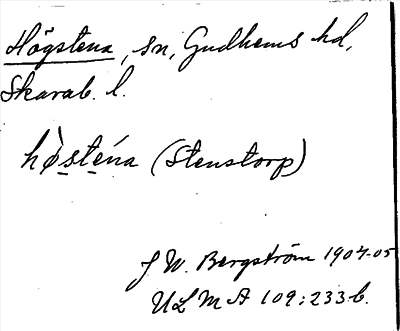 Högstena, sn, Gudhems hd,
Skarab. l.
hø̀sténa (Stenstorp)
J W. Bergström 1904-05
ULMA 109:233b.